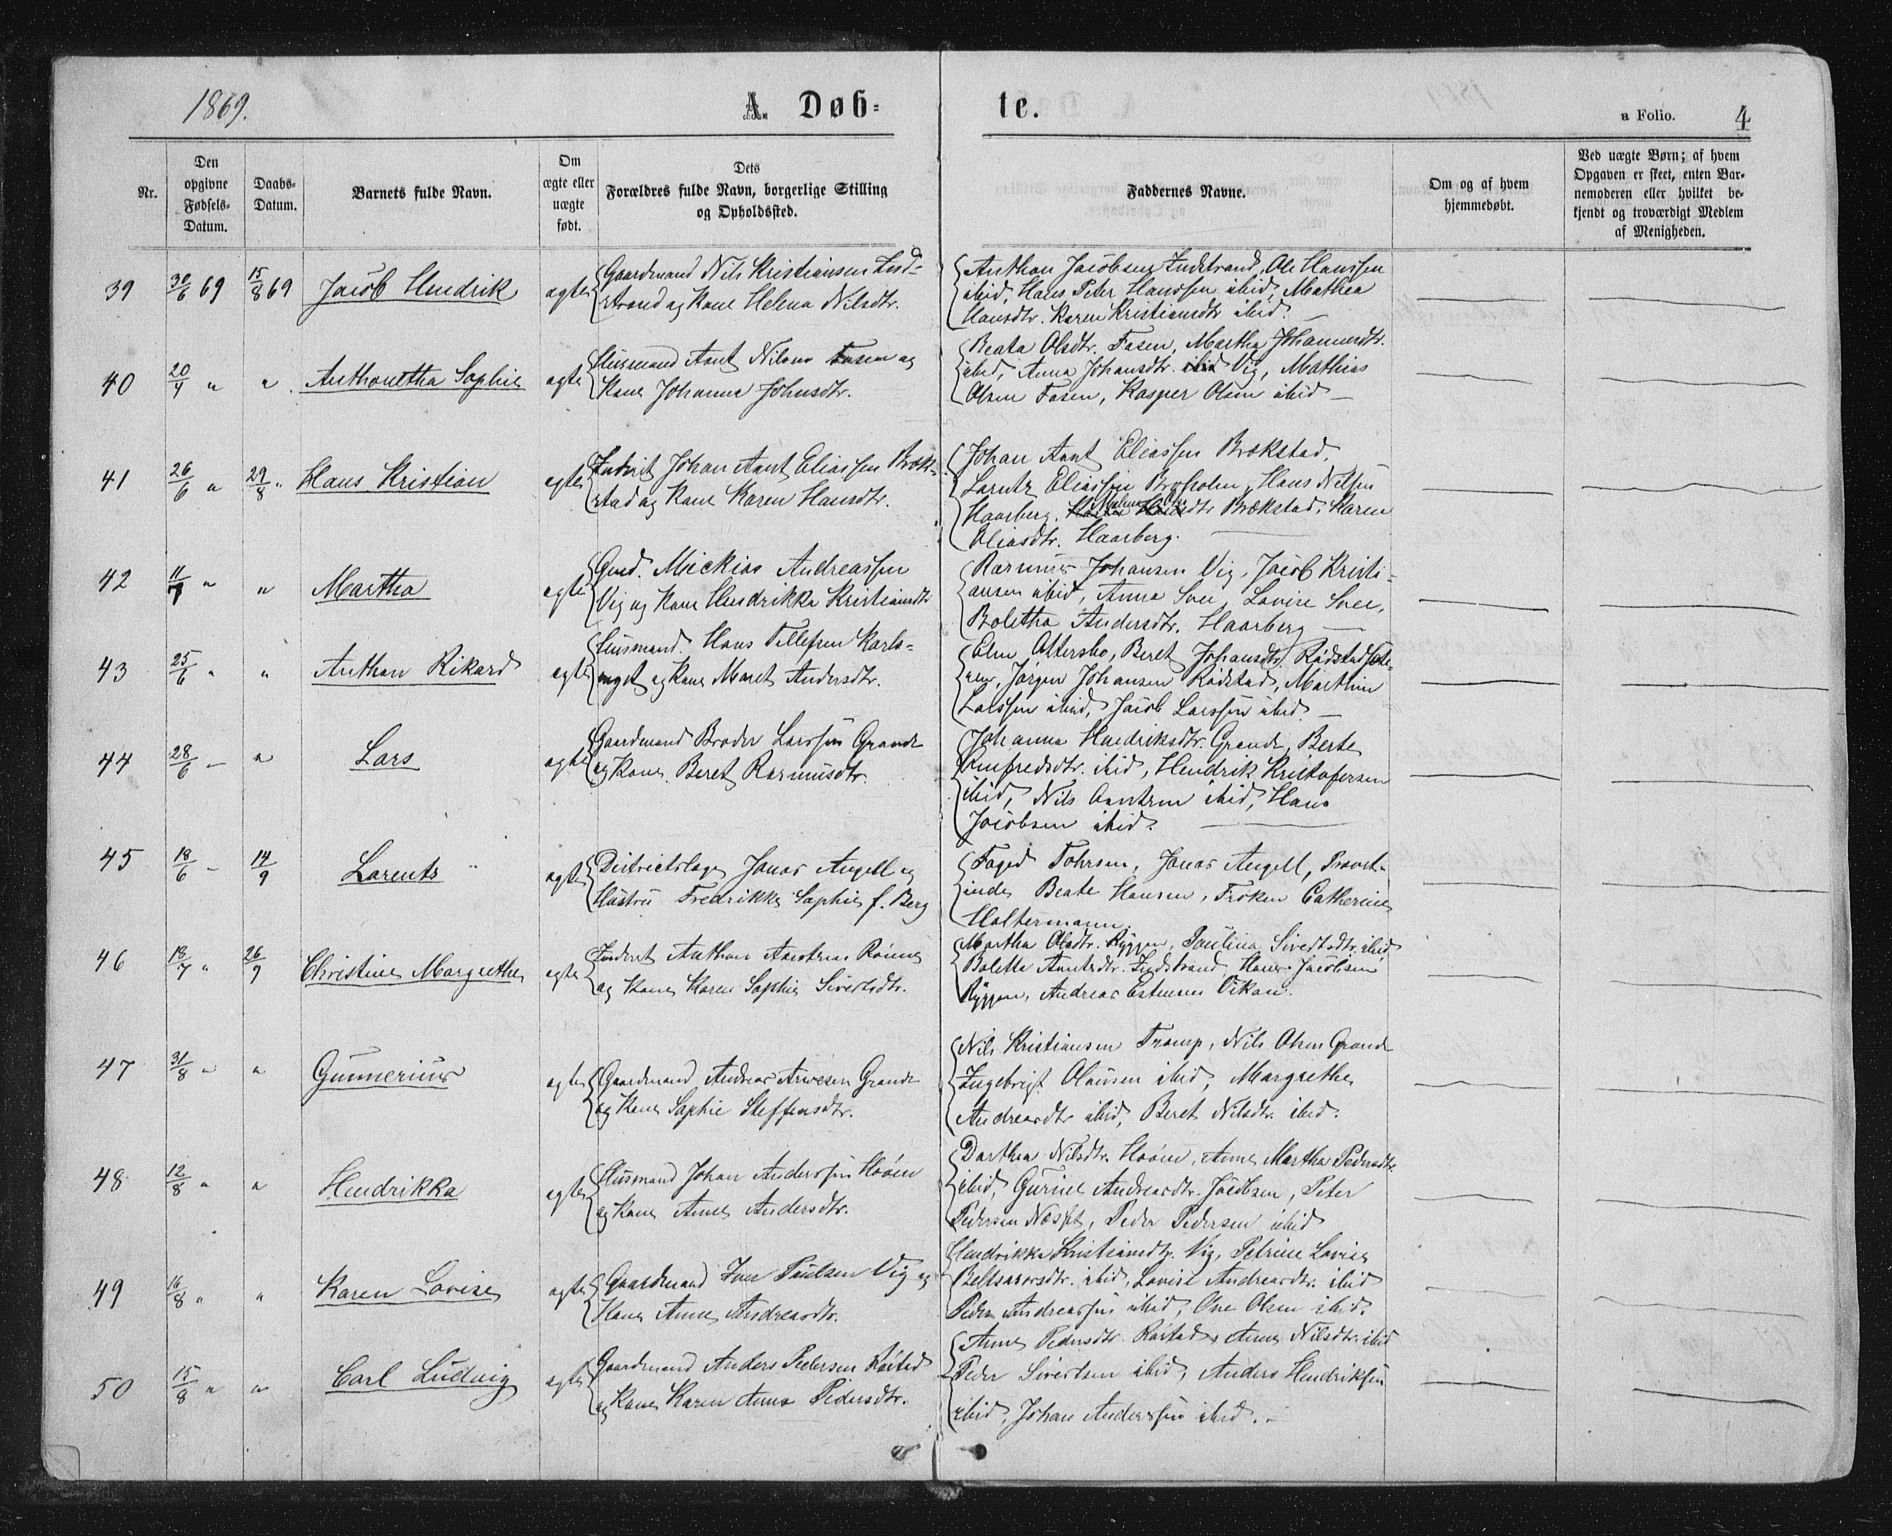 1869.
A. Døb-
te.
a Folio. 4
Nr.
Den opgivne Fødsels-Datum.
Daabs-Datum.
Barnets fulde Navn.
Om ægte eller uægte født.
Dets Forældres fulde Navn, borgerlige Stilling og Opholdssted.
Faddernes Navne.
Om og af hvem hjemmedøbt.
Ved uægte Børn; af hvem Opgaven er skeet, enten Barnemoderen eller hvilket bekjendt og troværdigt Medlem af Menigheden.
39 30/6 69 15/8 69 Jacob Hendrik ægte
Gaardmand Nils Kristiansen Ind-
strand og Kone Helena Nilsdtr.
Anthon Jacobsen Indstrand, Ole Hanssen
ibid, Hans Peter Hanssen ibid, Mathea
Hansdtr. Karen Kristiansdtr ibid. —
40 20/4 " " Anthonetha Sophie ægte
Husmand Arnt Nilsen Fosen og
Kone Johanna Johnsdtr.
Beata Olsdtr. Fosen, Martha Johannesdtr.
ibid, Anna Johansdtr. Vig, Mathias
Olsen Fosen, Kasper Olsen ibid —
41 26/6 " 29/8 " Hans Kristian ægte
Inderst Johan Arnt Eliassen Bræk-
stad og Kone Karen Hansdtr.
Johan Arnt Eliassen Brækstad,
Lorentz Eliassen, Hans Nilsen
Haarberg, Brækstad, Karen
Eliasdtr. Haarberg.
42 11/7 " " Martha ægte
Gmd. Mickias Andreassen
Vig og Kone Hendrikka Kristiansdtr
Rasmus Johansen Vig, Jacob Kristi-
ansen ibid, Anna Svee, Lovise Svee,
Boletha Andersdtr. Haarberg —
43 25/6 " " Anthon Rikard ægte
Husmand Hans Tillefsen Karls-
enget og Kone Maret Andersdtr.
Elen Ottersbo, Beret Johansdtr. Rødstad
Jørgen Johansen Rødstad, Marthin
Larssen ibid, Jacob Larssen ibid. —
44 28/6 — " Lars ægte
Gaardmand Broder Larssen Grande
og Kone Beret Rasmusdtr.
Johanna Hendriksdtr. Grande, Berte
ibid, Hendrik Kristofersen
ibid, Nils Arntsen ibid, Hans
Jacobsen ibid.
45 18/6 — 14/9 Lorents ægte
Districtslæge Jonas Angell og
Hustru Fredrikke Sophie f. Berg
Foged Tohrsen, Jonas Angell, Provst-
inde Beate Hansen, Frøken Catherine
Holtermann.
46 13/7 " 26/9 Christine Margrethe ægte
Inderst Anthon Arntsen
og Kone Karen Sophie Sivertsdtr.
Martha Olsdtr. Ryggen, Paulina Sivertsdtr. ibid
Bolette Arntsdtr. Indstrand, Hans Jacobsen
Ryggen, Andreas Estensen Vikan.
47 31/8 " " Gunnerius ægte
Gaardmand Andreas Arnesen Grande
og Kone Sophie Steffensdtr.
Nils Kristiansen Tromp, Nils Olsen Grande
Ingebrigt Olausen ibid, Margrethe
Andreasdtr ibid, Beret Nilsdtr. ibid.
48 12/8 " " Hendrikka ægte
Husmand Johan Anderssen Hoøen
og Kone Anne Andersdtr.
Dorthea Nilsdtr. Hoøen, Anne Martha Pedersdtr.
ibid, Gurine Andreasdtr. Jacobsen, Peter
Pedersen Næsset, Peder Pedersen ibid
49 16/8 " " Karen Lovise ægte
Gaardmand Iver Paulsen Vig og
Kone Anne Andreasdtr.
Hendrikka Kristiansdtr. Vig, Petrine Lovise
Beltsasorsdtr. ibid, Lovise Andreasdtr. ibid
Peder Andreassen ibid, Ove Olsen ibid.
50 15/8 " " Carl Ludvig ægte
Gaardmand Anders Pedersen Røstad
og Kone Karen Anna Pedersdtr.
Anne Pedersdtr. Røstad, Anne Nilsdtr. ibid
Peder Sivertsen ibid, Anders Hendriksen
ibid, Johan Anderssen ibid. —